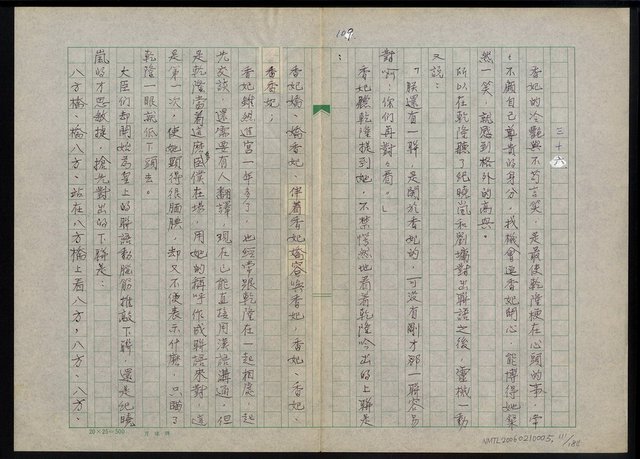 109.
三十六
香妃的冷艷與不苟言笑，是最使乾隆梗在心頭的事，常
不顧自己尊貴的身分，找機會逗香妃開心，能博得她粲
然一笑，就感到格外的高興。
所以在乾隆聽了紀曉嵐和劉墉對出聯語之後，靈機一動
又說：
「朕還有一聯，是關於香妃的，可沒有剛才那一聯容易
對啊！你們再對對看。」
香妃聽乾隆提到她，不禁愕然地看着乾隆吟出的上聯是
：
香妃嬌、嬌香妃、伴着香妃嬌容喚香妃，香妃、香妃、
香香妃；
香妃雖然進宮一年多了，也經常跟乾隆在一起相處，起
先交談，還需要有人翻譯，現在已能直接用漢語溝通，但
是乾隆當着這麼多個僕在場，用她的稱呼作成聯語來對，這
是第一次，使她顯得很腼腆，却又不便表示什麼，只瞄了
乾隆一眼就低下頭去。
大臣們却開始為皇上的聯語動腦筋推敲下聯，還是紀曉
嵐的才思敏捷，搶先對出的下聯是：
八方橋、橋八方、站在八方橋上看八方，八方、八方、
20×25=500
NMTL20060210005, 11/182